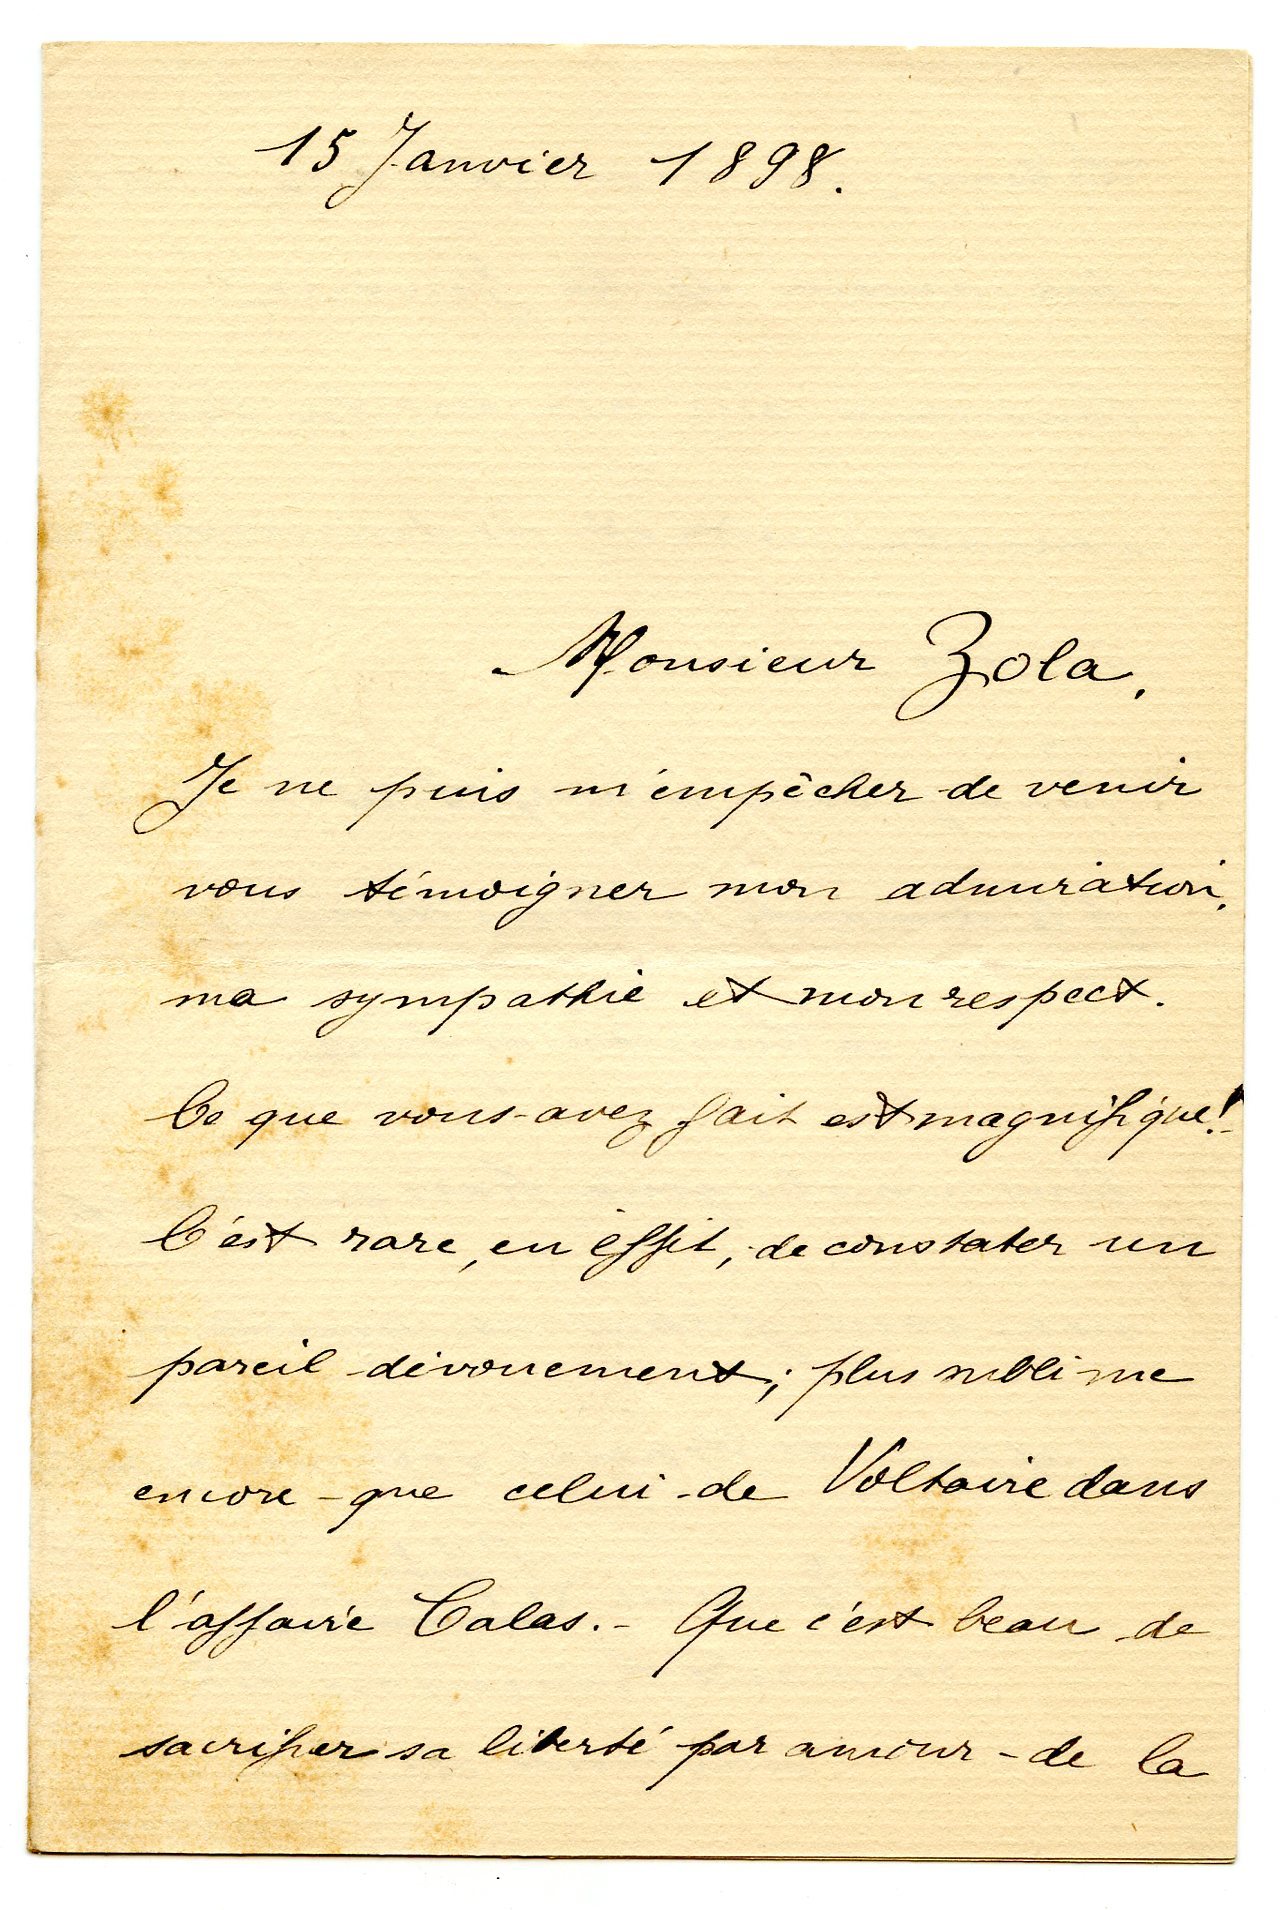 15 Janvier 1898.
Monsieur Zola,
Je ne puis m'empêcher de venir
vous témoigner mon admiration,
ma sympathie et mon respect.
Ce que vous avez fait est magnifique!
C'est rare, en effet, de constater un
pareil dévouement; plus sublime
encore que celui de Voltaire dans
l'affaire Calas. - Que c'est beau de
sacrifier sa liberté par amour de la